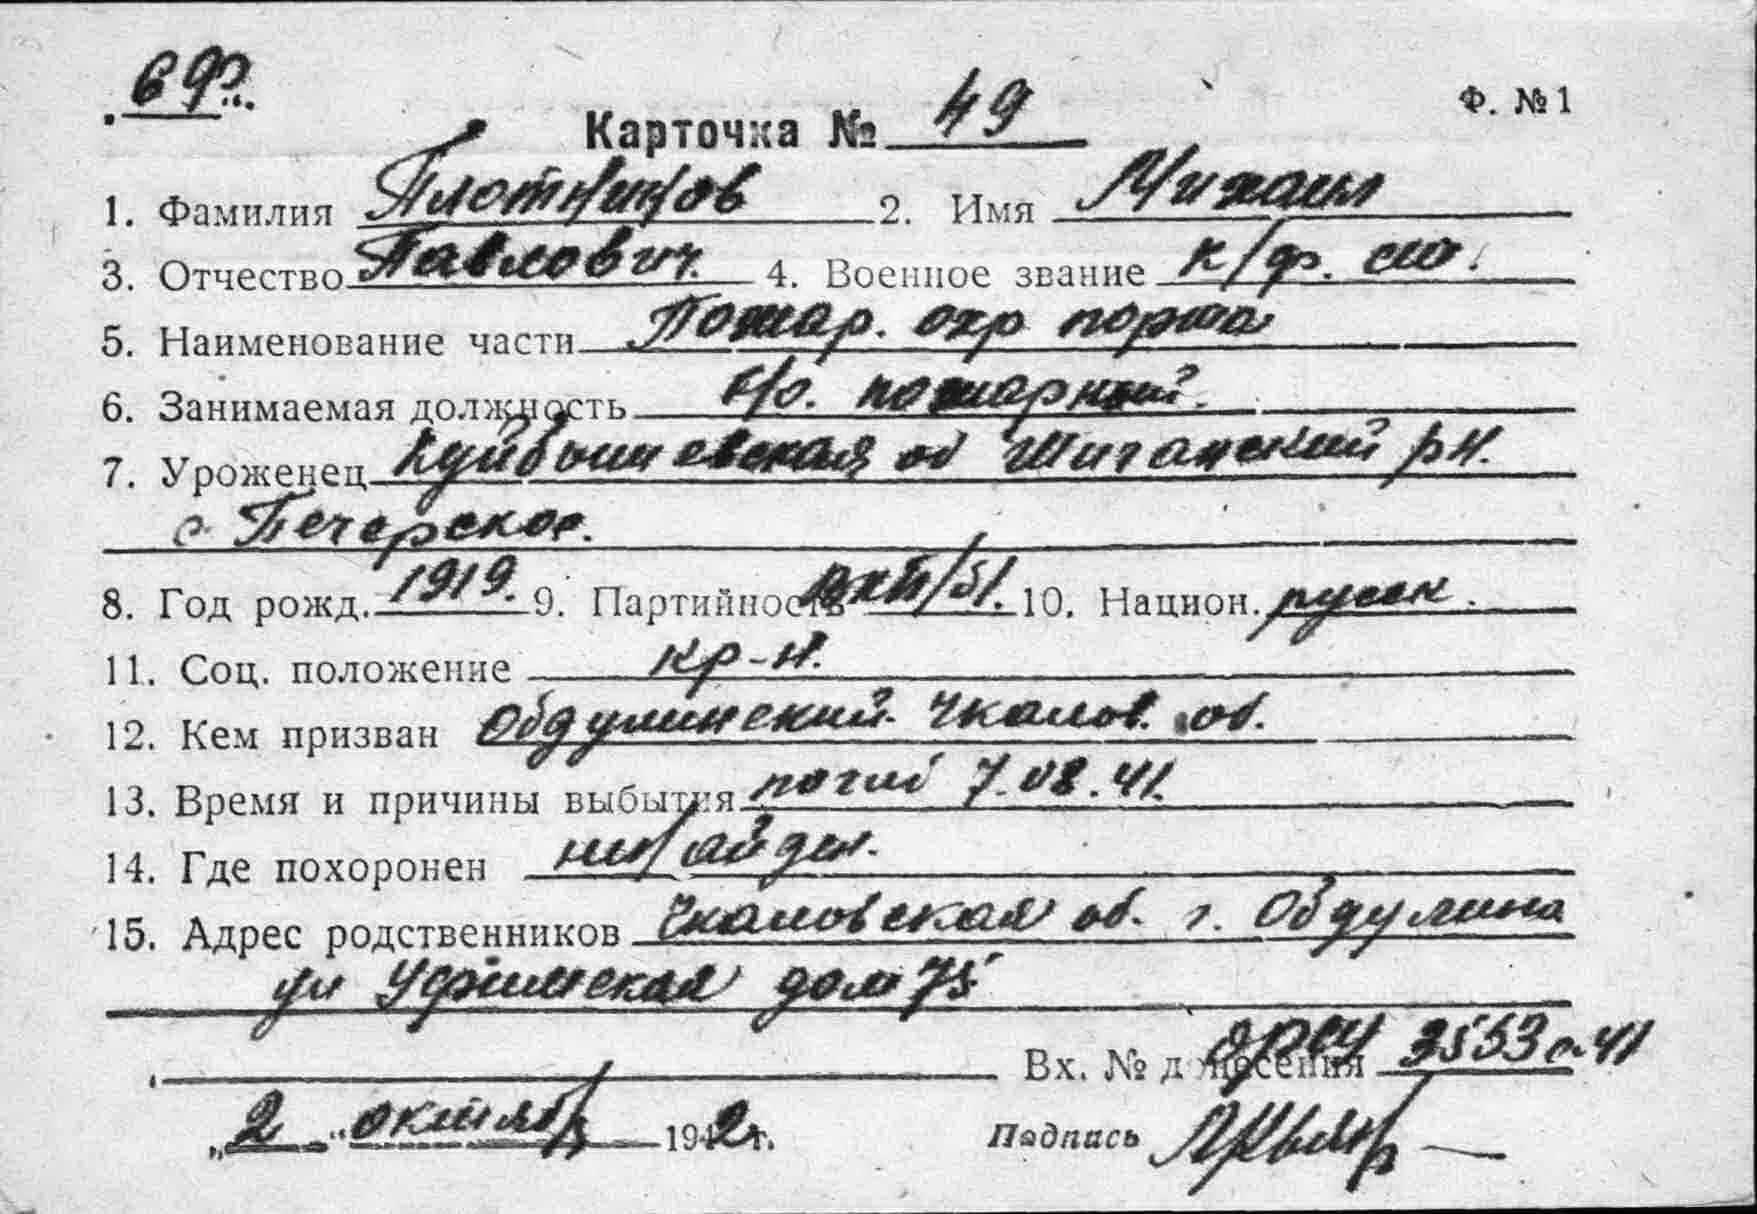 69
Ф. №1
Карточка № 49
1. Фамилия Плотников 2. Имя Михаил
3. Отчество Павлович. 4. Военное звание к/ф.
5. Наименование части Пожар. охр порта
6. Занимаемая должность пожарный.
7. Уроженец Куйбышевская об Шигонский р-н.
с. Печерское.
8. Год рожд. 1919. 9. Партийность 10. Национ. русск.
11. Соц. положение кр-н.
12. Кем призван Абдулинский Чкалов. об.
13. Время и причины выбытия погиб 7.08.41.
14. Где похоронен
15. Адрес родственников Чкаловская об. г. Абдулина
ул Уфимская дом 75
Вх. № донесения 3553с-41
„2“ октябр 1942г.
Подпись